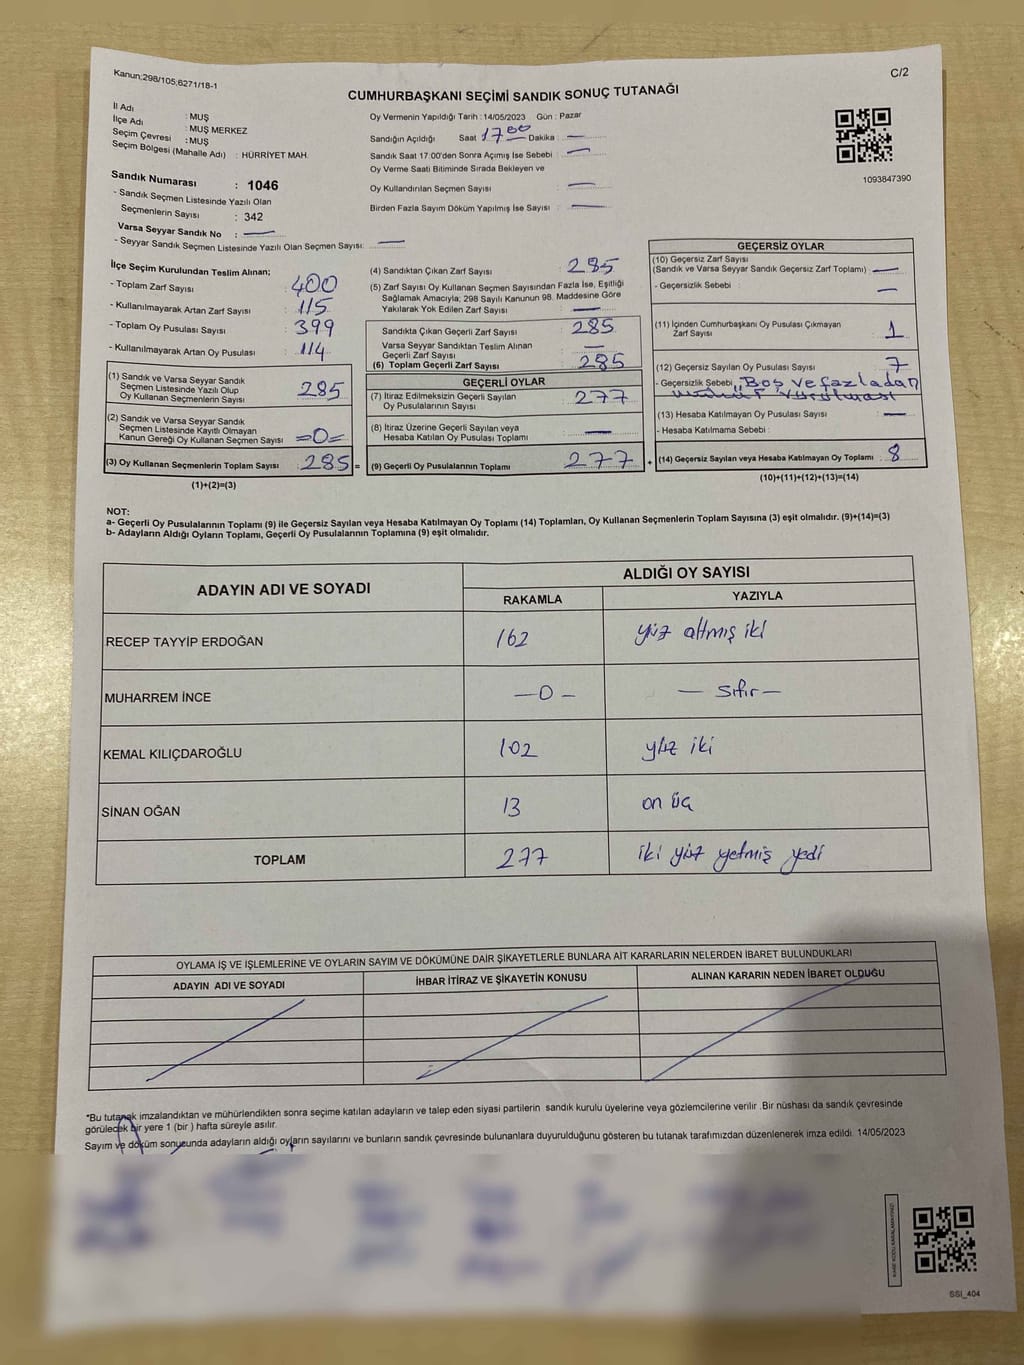 Kanun:298/105;6271/18-1
C/2
CUMHURBAŞKANI SEÇİMİ SANDIK SONUÇ TUTANAĞI
İl Adı : MUŞ
İlçe Adı : MUŞ MERKEZ
Seçim Çevresi : MUŞ
Seçim Bölgesi (Mahalle Adı) : HÜRRİYET MAH.
Oy Vermenin Yapıldığı Tarih : 14/05/2023 Gün : Pazar
Sandığın Açıldığı Saat 17 00 Dakika : —
Sandık Saat 17:00'den Sonra Açımış İse Sebebi : —
Oy Verme Saati Bitiminde Sırada Bekleyen ve
Oy Kullandırılan Seçmen Sayısı : —
Birden Fazla Sayım Döküm Yapılmış İse Sayısı : —
1093847390
Sandık Numarası : 1046
- Sandık Seçmen Listesinde Yazılı Olan
Seçmenlerin Sayısı : 342
Varsa Seyyar Sandık No : —
- Seyyar Sandık Seçmen Listesinde Yazılı Olan Seçmen Sayısı: —
İlçe Seçim Kurulundan Teslim Alınan;
- Toplam Zarf Sayısı : 400
- Kullanılmayarak Artan Zarf Sayısı : 115
- Toplam Oy Pusulası Sayısı : 399
- Kullanılmayarak Artan Oy Pusulası : 114
(1) Sandık ve Varsa Seyyar Sandık
Seçmen Listesinde Yazılı Olup
Oy Kullanan Seçmenlerin Sayısı : 285
(2) Sandık ve Varsa Seyyar Sandık
Seçmen Listesinde Kayıtlı Olmayan
Kanun Gereği Oy Kullanan Seçmen Sayısı : =0=
(3) Oy Kullanan Seçmenlerin Toplam Sayısı : 285 =
(1)+(2)=(3)
(4) Sandıktan Çıkan Zarf Sayısı : 285
(5) Zarf Sayısı Oy Kullanan Seçmen Sayısından Fazla İse, Eşitliği
Sağlamak Amacıyla; 298 Sayılı Kanunun 98. Maddesine Göre
Yakılarak Yok Edilen Zarf Sayısı : —
Sandıkta Çıkan Geçerli Zarf Sayısı : 285
Varsa Seyyar Sandıktan Teslim Alınan
Geçerli Zarf Sayısı : —
(6) Toplam Geçerli Zarf Sayısı : 285
GEÇERLİ OYLAR
(7) İtiraz Edilmeksizin Geçerli Sayılan
Oy Pusulasının Sayısı : 277
(8) İtiraz Üzerine Geçerli Sayılan veya
Hesaba Katılan Oy Pusulası Toplamı : —
(9) Geçerli Oy Pusulalarının Toplamı : 277 +
GEÇERSİZ OYLAR
(10) Geçersiz Zarf Sayısı
(Sandık ve Varsa Seyyar Sandık Geçersiz Zarf Toplamı) : —
- Geçersizlik Sebebi : —
(11) İçinden Cumhurbaşkanı Oy Pusulası Çıkmayan
Zarf Sayısı : 1
(12) Geçersiz Sayılan Oy Pusulası Sayısı : 7
- Geçersizlik Sebebi : Boş ve fazladan
mühür vurulması
(13) Hesaba Katılmayan Oy Pusulası Sayısı : —
- Hesaba Katılmama Sebebi :
(14) Geçersiz Sayılan veya Hesaba Katılmayan Oy Toplamı : 8
(10)+(11)+(12)+(13)=(14)
NOT:
a- Geçerli Oy Pusulalarının Toplamı (9) ile Geçersiz Sayılan veya Hesaba Katılmayan Oy Toplamı (14) Toplamları, Oy Kullanan Seçmenlerin Toplam Sayısına (3) eşit olmalıdır. (9)+(14)=(3)
b- Adayların Aldığı Oyların Toplamı, Geçerli Oy Pusulalarının Toplamına (9) eşit olmalıdır.
ADAYIN ADI VE SOYADI
ALDIĞI OY SAYISI
RAKAMLA YAZIYLA
RECEP TAYYİP ERDOĞAN 162 yüz altmış iki
MUHARREM İNCE —0— — sıfır —
KEMAL KILIÇDAROĞLU 102 yüz iki
SİNAN OĞAN 13 on üç
TOPLAM 277 iki yüz yetmiş yedi
OYLAMA İŞ VE İŞLEMLERİNE VE OYLARIN SAYIM VE DÖKÜMÜNE DAİR ŞİKAYETLERLE BUNLARA AİT KARARLARIN NELERDEN İBARET BULUNDUKLARI
ADAYIN ADI VE SOYADI İHBAR İTİRAZ VE ŞİKAYETİN KONUSU ALINAN KARARIN NEDEN İBARET OLDUĞU
*Bu tutanak imzalandıktan ve mühürlendikten sonra seçime katılan adayların ve talep eden siyasi partilerin sandık kurulu üyelerine veya gözlemcilerine verilir .Bir nüshası da sandık çevresinde
görülecek bir yere 1 (bir ) hafta süreyle asılır.
Sayım ve döküm sonucunda adayların aldığı oyların sayılarını ve bunların sandık çevresinde bulunanlara duyurulduğunu gösteren bu tutanak tarafımızdan düzenlenerek imza edildi. 14/05/2023
SSI_404